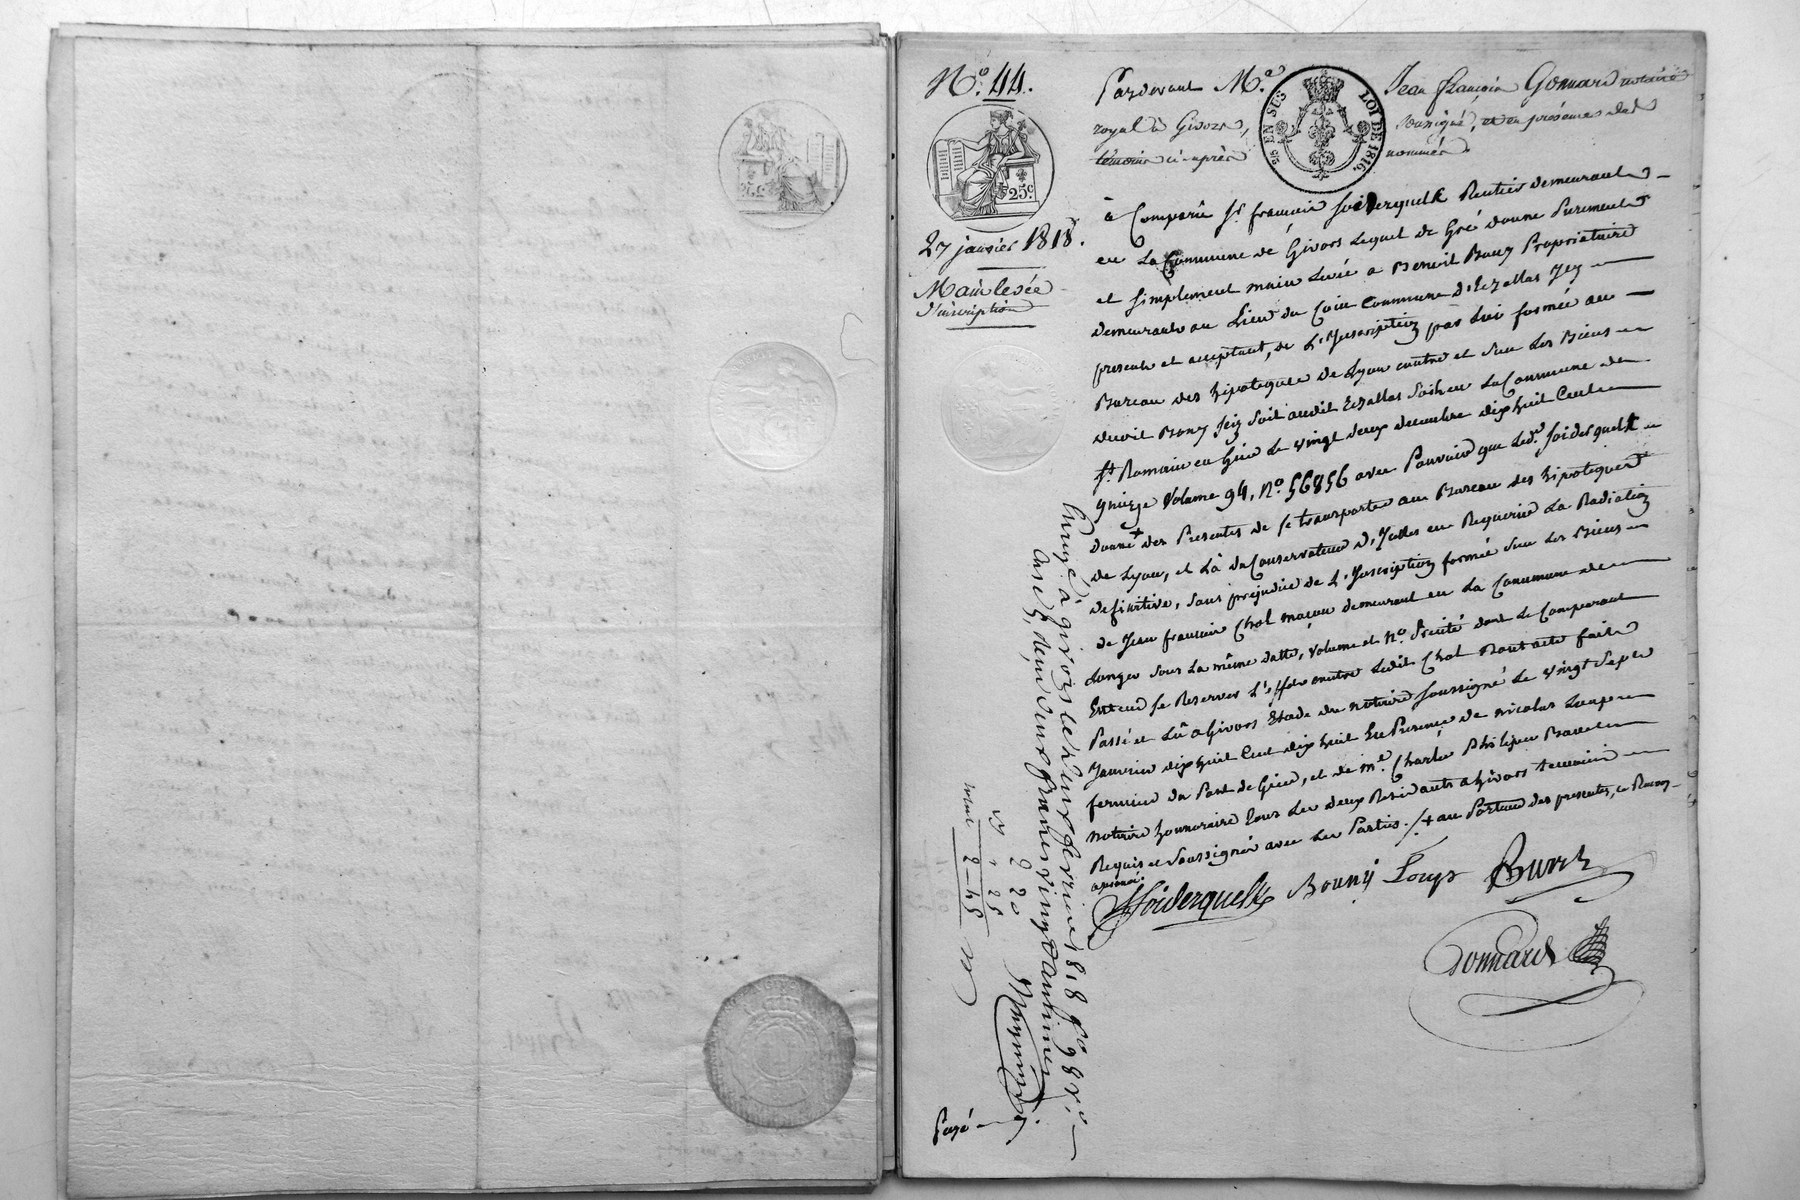 N.º 44.
25 c.
27 janvier 1818.
Mainlevée
d'inscription
Pardevant M.e Jean françois Gonnard notaire
royal à Givors, soussigné, et en présence des
témoins ci-après nommés.
EN SUS LOI DE 1816.
à Comparû Sr. françois Soiderquelk Rentier demeurant
en La Commune de Givors Lequel de Gré donne Purement
et Simplement main Levée a Benoit Bouny Propriétaire
demeurant au Lieu du Coin Commune d'Echallas Icy
présent et acceptant, de L'Inscription par Lui formée au
Bureau des hipoteques de Lyon contre et Sur Les Biens
dudit Bouny Soit audit Echallas Soit en La Commune de
St. Romain en Gier Le vingt deux decembre dix huit Cent
quinze Volume 94, N.º 56856 avec Pouvoir que Led. Sr. Soiderquelk
donne + des Presentes de se transporter au Bureau des hipoteques
de Lyon, et Là du Conservateur d'Icelles en Requerir La Radiation
definitive, Sans préjudice de L'Inscription formée Sur Les Biens
de Jean françois Chol maçon demeurant en La Commune de
Longes Sous La même datte, Volume et N.º Precité dont Le Comparant
Entend se Reserver L'Effet contre Ledit Chol Dont acte fait
Passé et Lû a Givors Etude du notaire Soussigné Le vingt Sept
Janvier dix huit Cent dix huit En Presence de nicolas Loup
fermier du Pont de Gier, et de m.e Charles Philipe
notaire honnoraire tous Les deux Residants a Givors temoins
Requis et Soussignés avec Les Parties. /+ au Porteur des presentes, ce Renvoy
aprouvé.
Soiderquelk Bouny Loup
Gonnard
Enregé à givors le deux fevrier 1818 fo. 98
deux francs vingt centimes
2 20
25
2 - 45